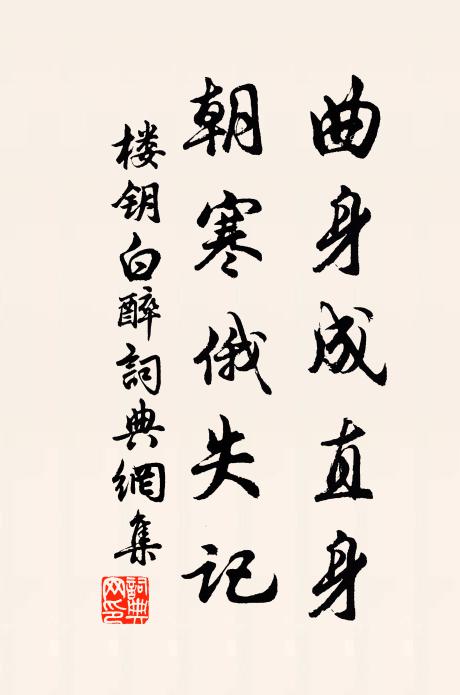 曲身成直身
朝寒俄失记
楼钥白醉詞典網集
詞典網印